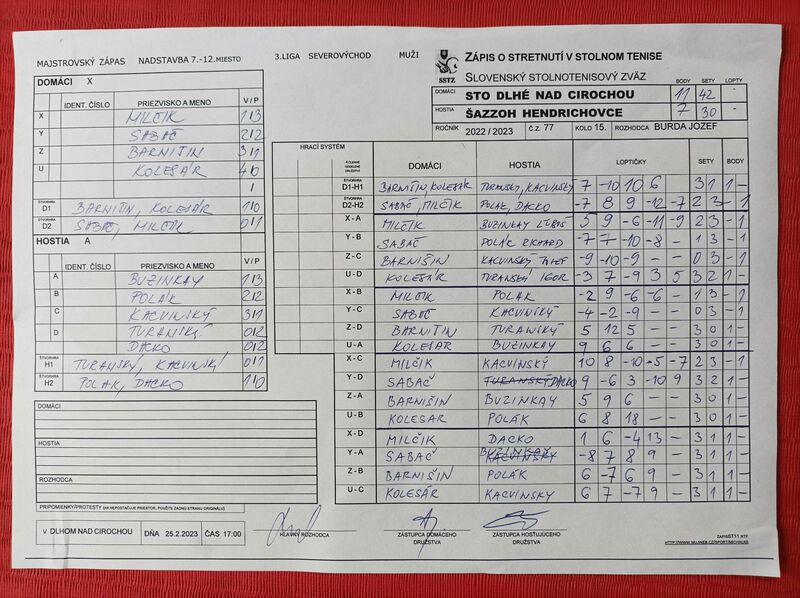 MAJSTROVSKÝ ZÁPAS NADSTAVBA 7.-12.MIESTO 3.LIGA SEVEROVÝCHOD MUŽI
SSTZ
ZÁPIS O STRETNUTÍ V STOLNOM TENISE
SLOVENSKÝ STOLNOTENISOVÝ ZVÄZ
BODY SETY LOPTY
DOMÁCI STO DLHÉ NAD CIROCHOU 11 42 -
HOSTIA ŠAZZOH HENDRICHOVCE 7 30 -
ROČNÍK 2022 / 2023 č.z. 77 KOLO 15. ROZHODCA BURDA JOZEF
DOMÁCI X
IDENT. ČÍSLO PRIEZVISKO A MENO V/P
X MILČIK 1/3
Y SABAČ 2/2
Z BARNIŠIN 3/1
U KOLESÁR 4/0
/
ŠTVORHRA D1 BARNIŠIN, KOLESÁR 1/0
ŠTVORHRA D2 SABAČ, MILČIK 0/1
HOSTIA A
IDENT. ČÍSLO PRIEZVISKO A MENO V/P
A BUZINKAY 1/3
B POLÁK 2/2
C KACVINSKÝ 3/1
D TURANSKÝ 0/2
DACKO 0/2
ŠTVORHRA H1 TURANSKÝ, KACVINSKÝ 0/1
ŠTVORHRA H2 POLAK, DACKO 1/0
DOMÁCI
HOSTIA
ROZHODCA
PRIPOMIENKY/PROTESTY (AK NEPOSTAČUJE PRIESTOR, POUŽITE ZADNÚ STRANU ORIGINÁLU)
HRACÍ SYSTÉM
DOMÁCI HOSTIA LOPTIČKY SETY BODY
ŠTVORHRA D1-H1 BARNIŠIN, KOLESÁR TURANSKY, KACVINSKY 7 -10 10 6 3 1 1 -
ŠTVORHRA D2-H2 SABAČ, MILČIK POLAK, DACKO -7 8 9 -12 -7 2 3 - 1
X-A MILČIK BUZINKAY ĽUBOŠ 5 9 -6 -11 -9 2 3 - 1
Y-B SABAČ POLÁK RICHARD -7 7 -10 -8 - 1 3 - 1
Z-C BARNIŠIN KACVINSKÝ -9 -10 -9 - - 0 3 - 1
U-D KOLESÁR TURANSKÝ IGOR -3 7 -9 3 5 3 2 1 -
X-B MILČIK POLAK -2 9 -6 -6 - 1 3 - 1
Y-C SABAČ KACVINSKÝ -4 -2 -9 - - 0 3 - 1
Z-D BARNIŠIN TURANSKÝ 5 12 5 - - 3 0 1 -
U-A KOLESAR BUZINKAY 9 6 6 - - 3 0 1 -
X-C MILČIK KACVINSKÝ 10 8 -10 -5 -7 2 3 - 1
Y-D SABAČ TURANSKÝ DACKO 9 -6 3 -10 9 3 2 1 -
Z-A BARNIŠIN BUZINKAY 5 9 6 - - 3 0 1 -
U-B KOLESAR POLÁK 6 8 18 - - 3 0 1 -
X-D MILČIK DACKO 1 6 -4 13 - 3 1 1 -
Y-A SABAČ BUZINKAY KACVINSKY -8 7 8 9 - 3 1 1 -
Z-B BARNIŠIN POLAK 6 -7 6 9 - 3 1 1 -
U-C KOLESÁR KACVINSKY 6 7 -7 9 - 3 1 1 -
V DLHOM NAD CIROCHOU DŇA 25.2.2023 ČAS 17:00
HLAVNÝ ROZHODCA
ZÁSTUPCA DOMÁCEHO DRUŽSTVA
ZÁSTUPCA HOSŤUJÚCEHO DRUŽSTVA
ZAPISST11.RTF